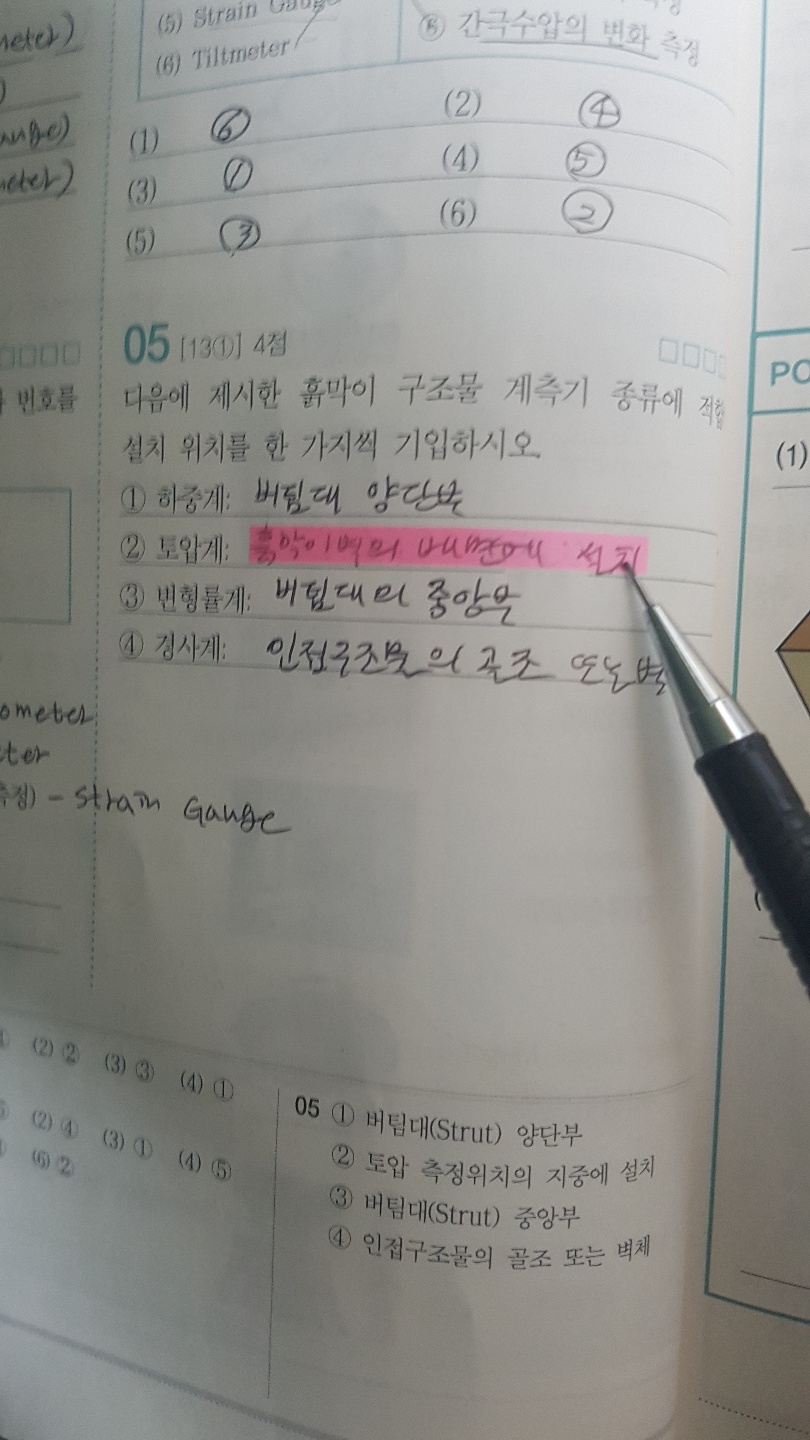 meter)
(5) Strain Gauge
(6) Tiltmeter
⑥ 간극수압의 변화 측정
)
auge)
meter)
(1) ⑥
(2) ④
(3) ①
(4) ⑤
(5) ③
(6) ②
번호를
05 [13①] 4점
다음에 제시한 흙막이 구조물 계측기 종류에 적합
설치 위치를 한 가지씩 기입하시오.
① 하중계: 버팀대 양단부
② 토압계: 흙막이벽의 배면에 설치
③ 변형률계: 버팀대의 중앙부
④ 경사계: 인접구조물의 골조 또는 벽
ometer
ter
측정) - Strain Gauge
(2) ② (3) ③ (4) ①
(2) ④ (3) ① (4) ⑤
(6) ②
05 ① 버팀대(Strut) 양단부
② 토압 측정위치의 지중에 설치
③ 버팀대(Strut) 중앙부
④ 인접구조물의 골조 또는 벽체
PO
(1)